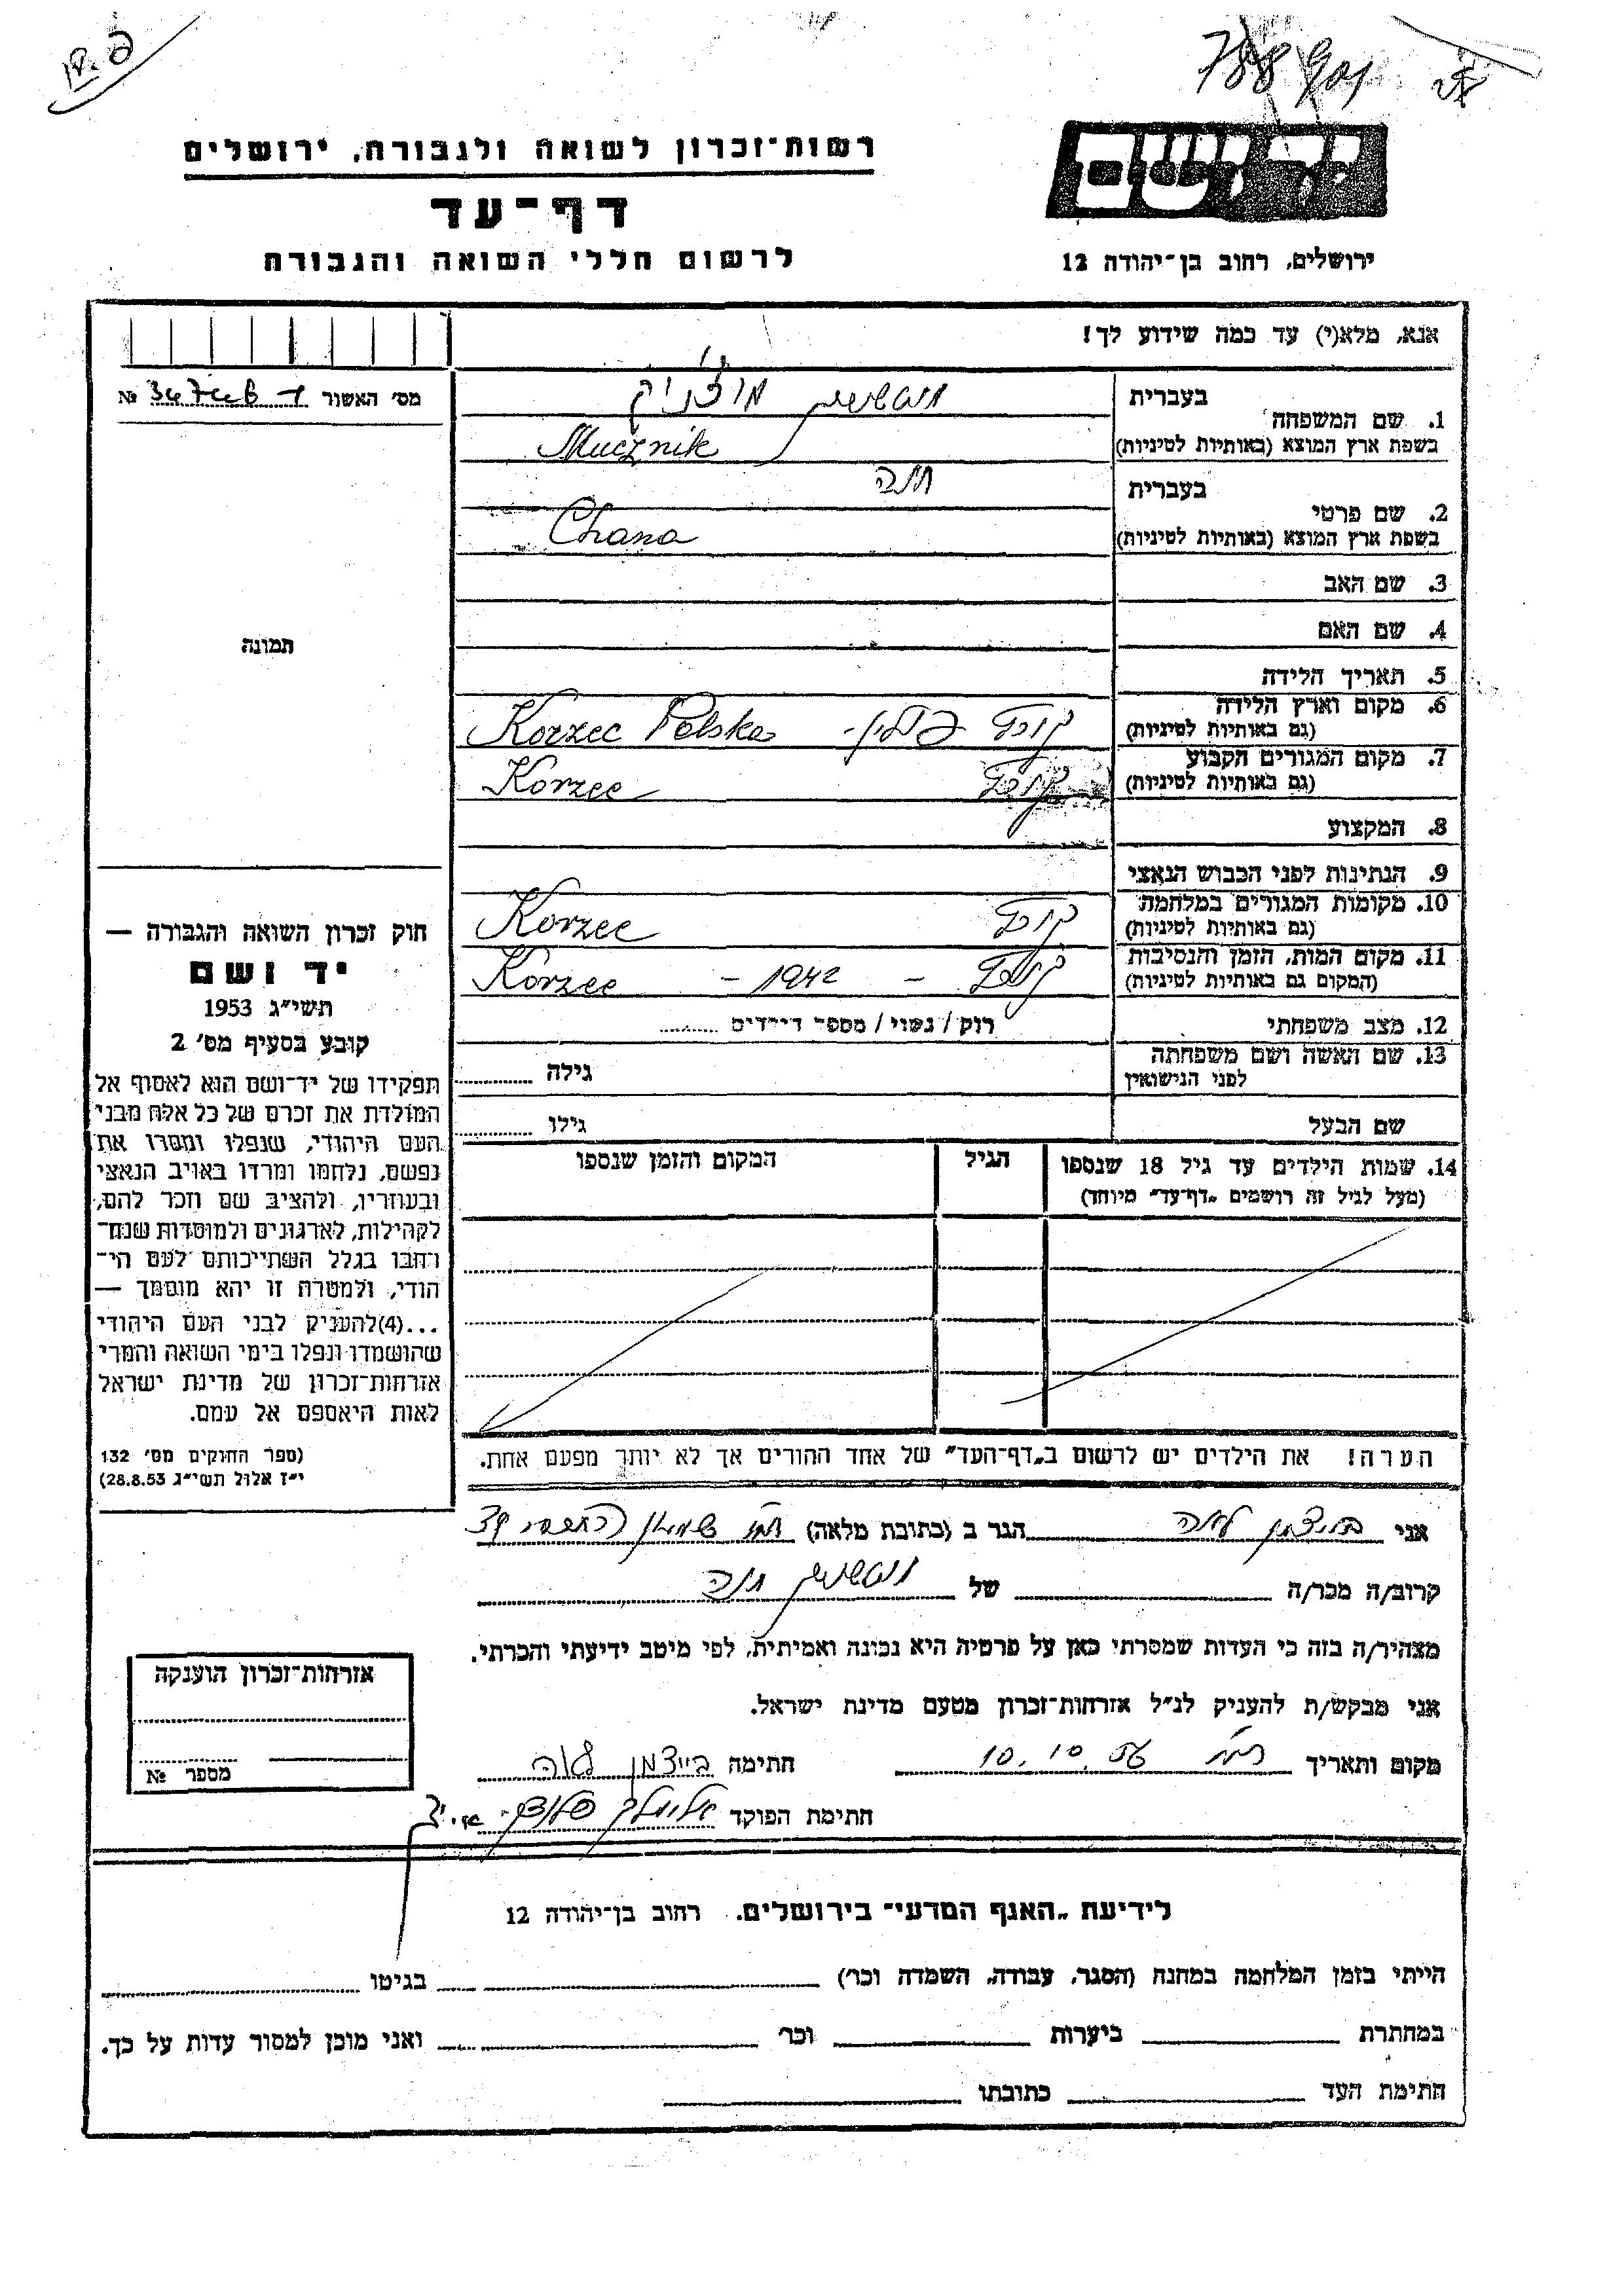 788901
יד ושם
רשות-זכרון לשואה ולגבורה, ירושלים
דף-עד
לרשום חללי השואה והגבורה
ירושלים, רחוב בן-יהודה 12
אנא, מלא(י) עד כמה שידוע לך!
מס׳ האשור №
בעברית
1. שם המשפחה
מוצ׳ניק
בשפת ארץ המוצא (באותיות לטיניות) Mucznik
בעברית חנה
2. שם פרטי
בשפת ארץ המוצא (באותיות לטיניות) Chana
3. שם האב
4. שם האם
תמונה
5. תאריך הלידה
6. מקום וארץ הלידה
(גם באותיות לטיניות) קורץ פולין - Korzec Polska
7. מקום המגורים הקבוע
(גם באותיות לטיניות) קורץ Korzec
8. המקצוע
9. הנתינות לפני הכבוש הנאצי
10. מקומות המגורים במלחמה
(גם באותיות לטיניות) קורץ Korzec
11. מקום המות, הזמן והנסיבות
(המקום גם באותיות לטיניות) קורץ - 1942 - Korzec
12. מצב משפחתי רוק / נשוי / מספר הילדים
13. שם האשה ושם משפחתה
לפני הנישואין גילה
שם הבעל גילו
14. שמות הילדים עד גיל 18 שנספו
(מעל לגיל זה רושמים „דף-עד” מיוחד)
הגיל
המקום והזמן שנספו
הערה! את הילדים יש לרשום ב„דף-העד” של אחד ההורים אך לא יותר מפעם אחת.
חוק זכרון השואה והגבורה —
יד ושם
תשי״ג 1953
קובע בסעיף מס׳ 2
תפקידו של יד-ושם הוא לאסוף אל
המולדת את זכרם של כל אלה מבני
העם היהודי, שנפלו ומסרו את
נפשם, נלחמו ומרדו באויב הנאצי
ובעוזריו, ולהציב שם וזכר להם,
לקהילות, לארגונים ולמוסדות שנח־
רבו בגלל השתייכותם לעם הי־
הודי, ולמטרה זו יהא מוסמך —
...(4)להעניק לבני העם היהודי
שהושמדו ונפלו בימי השואה והמרי
אזרחות-זכרון של מדינת ישראל
לאות היאספם אל עמם.
(ספר החוקים מס׳ 132
י״ז אלול תשי״ג 28.8.53)
אני בייצמן לאה הגר ב (כתובת מלאה)
קרוב/ה מכר/ה של חנה
מצהיר/ה בזה כי העדות שמסרתי כאן על פרטיה היא נכונה ואמיתית, לפי מיטב ידיעתי והכרתי.
אני מבקש/ת להעניק לנ״ל אזרחות-זכרון מטעם מדינת ישראל.
מקום ותאריך 10.10.56 חתימה בייצמן לאה
חתימת הפוקד
אזרחות-זכרון הוענקה
מספר №
לידיעת „האגף המדעי” בירושלים. רחוב בן-יהודה 12
הייתי בזמן המלחמה במחנה (הסגר, עבודה, השמדה וכר׳) בגיטו
במחתרת ביערות וכר׳ ואני מוכן למסור עדות על כך.
חתימת העד כתובתו